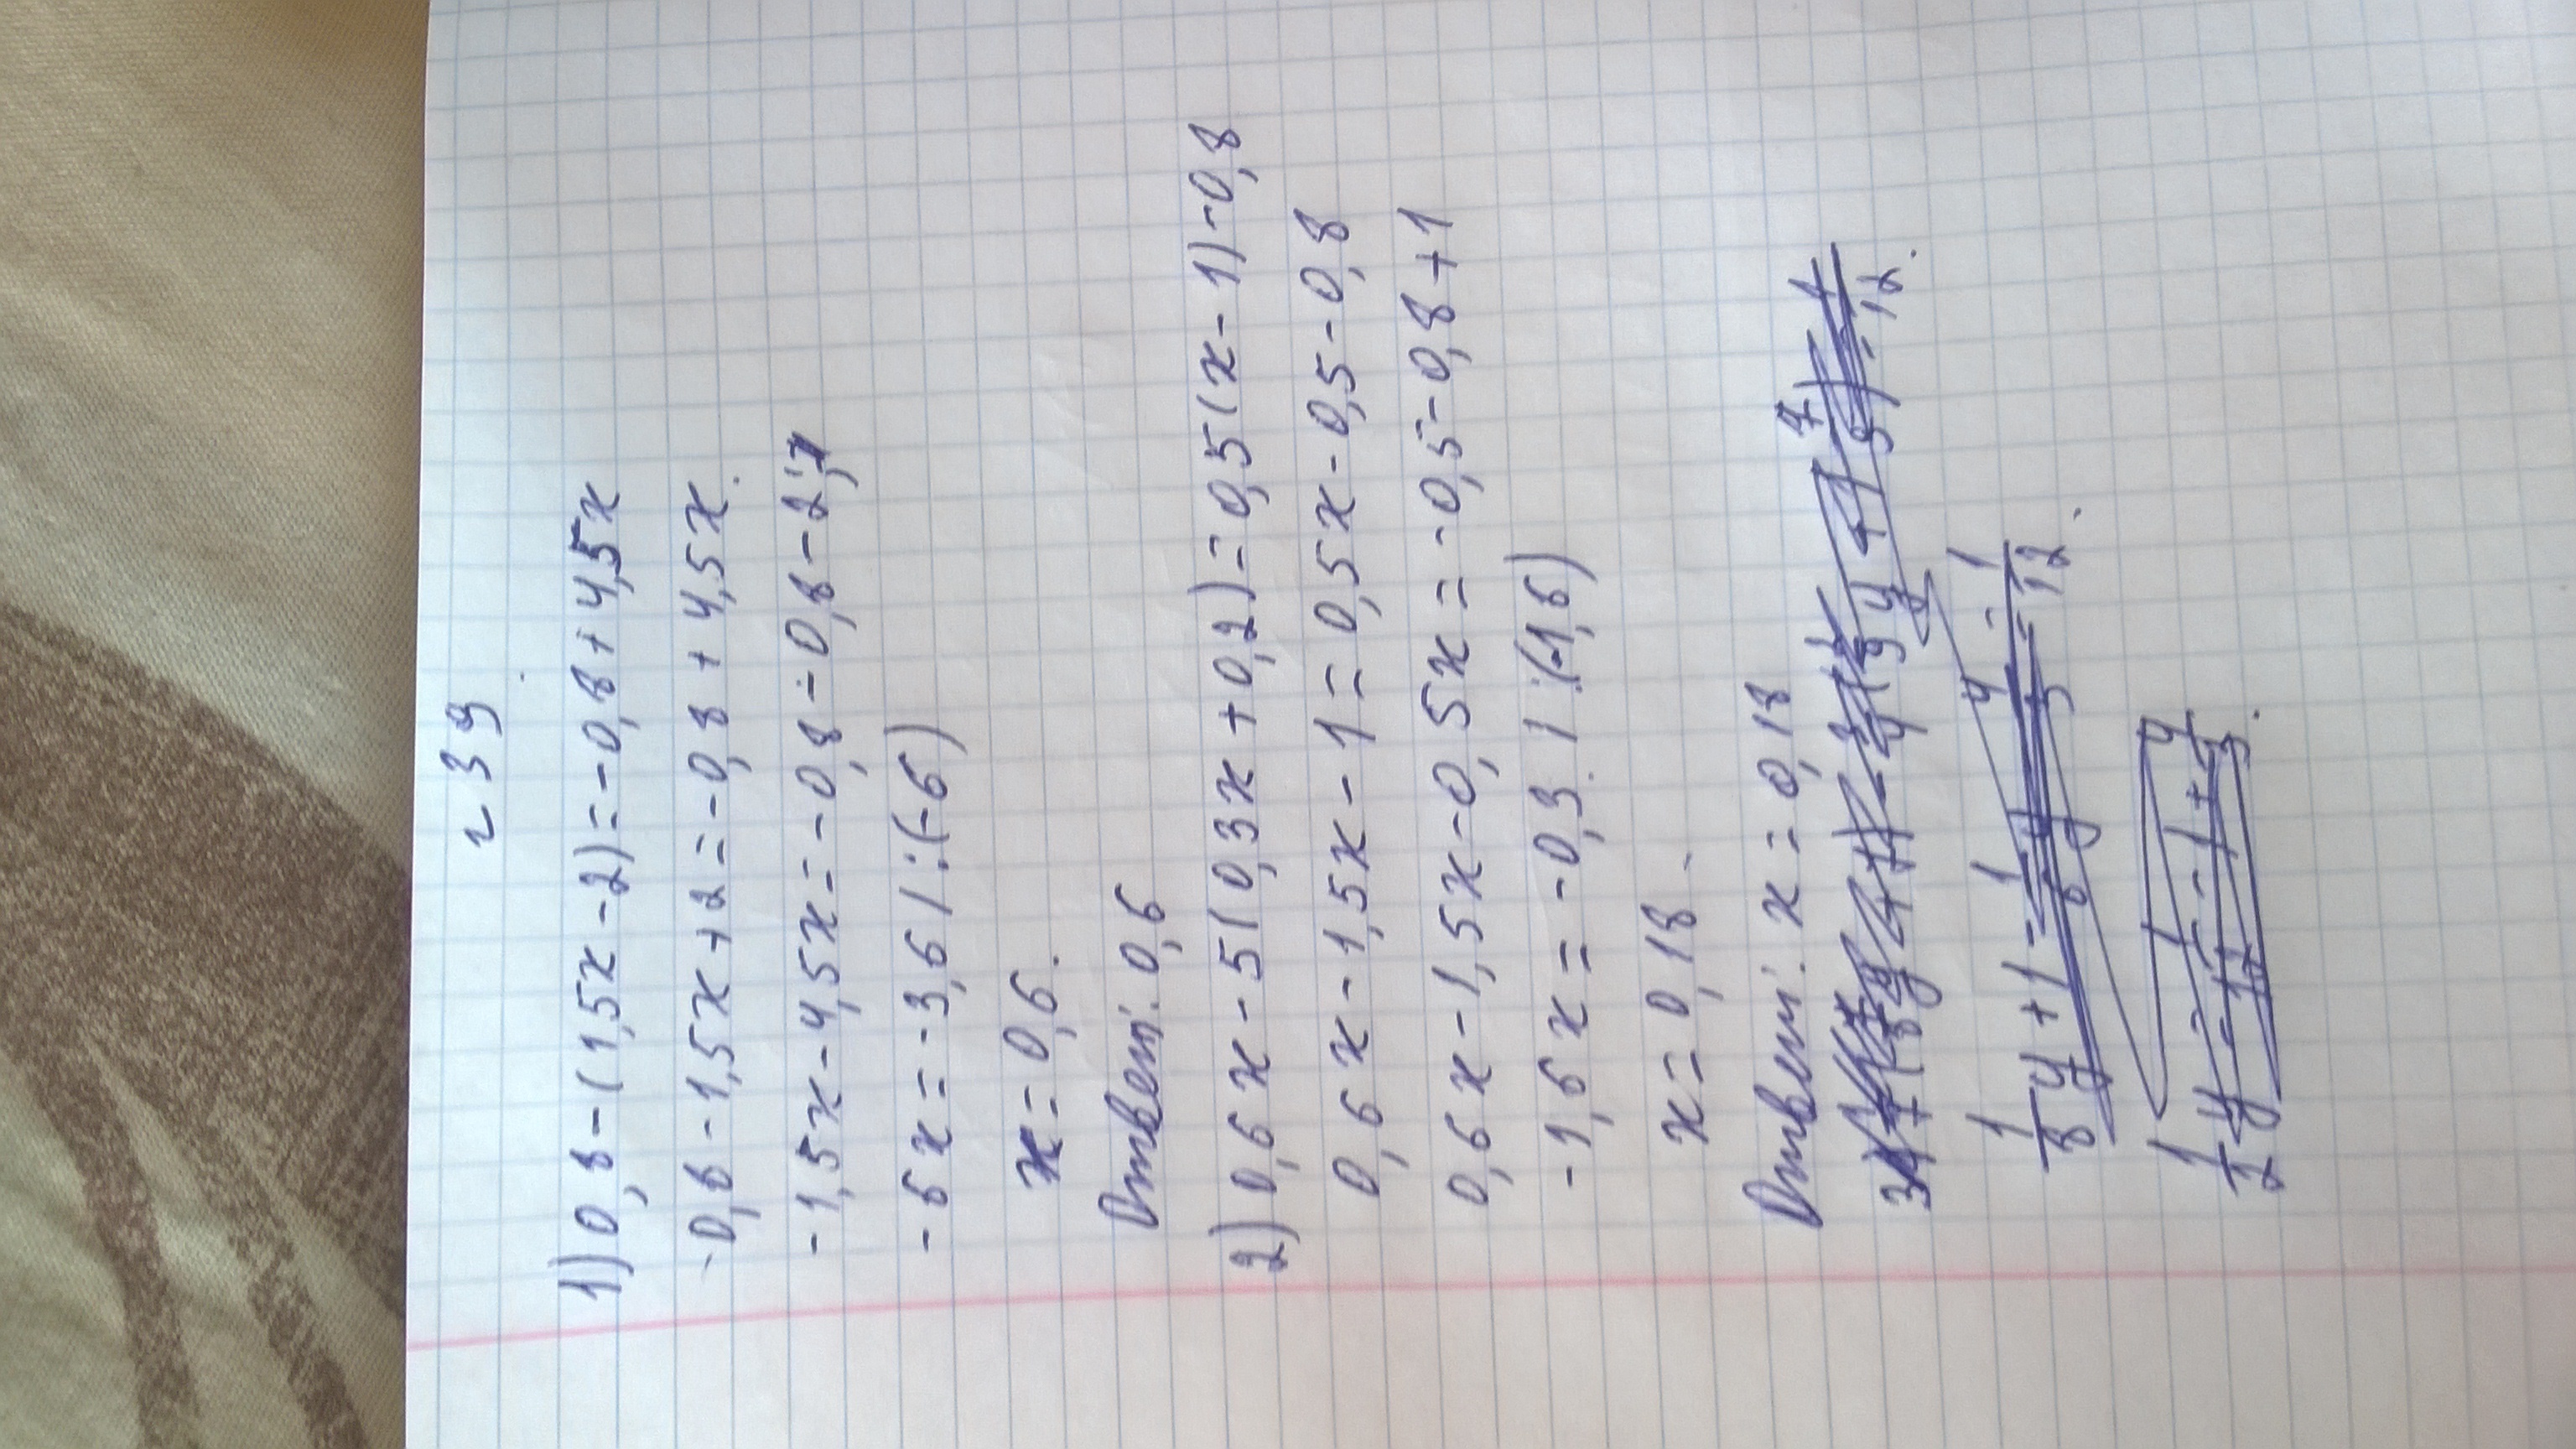 239
1) 0,8-(1,5x-2)=-0,8+4,5x
-0,8-1,5x+2=-0,8+4,5x.
-1,5x-4,5x=-0,8-0,8-2;
-6x=-3,6 | :(-6)
x=0,6.
Ответ: 0,6
2) 0,6x-5(0,3x+0,2)=0,5(x-1)-0,8
0,6x-1,5x-1=0,5x-0,5-0,8
0,6x-1,5x-0,5x=-0,5-0,8+1
-1,6x=-0,3 | :(-1,6)
x=0,18.
Ответ: x=0,18